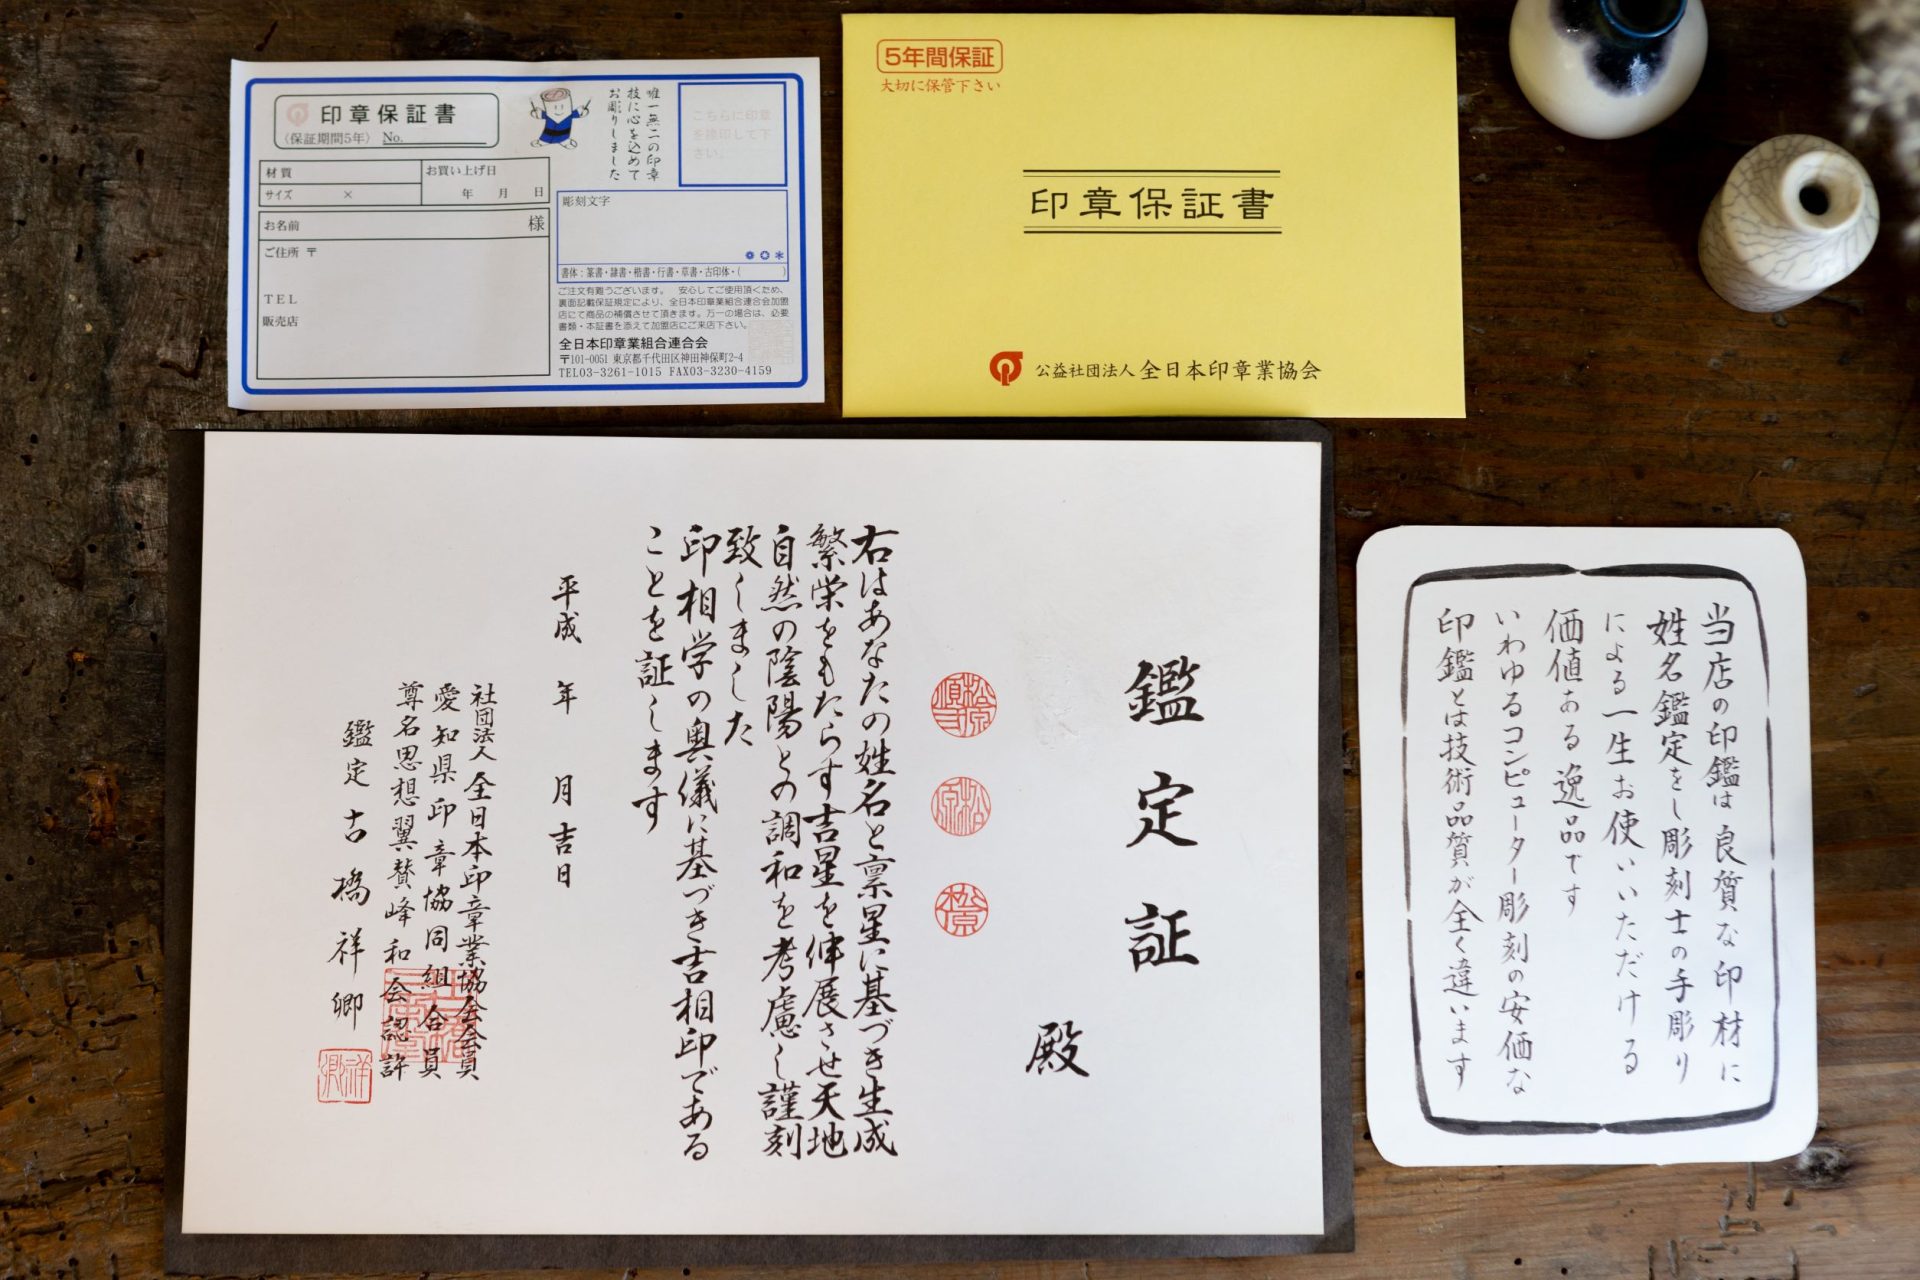 印章保証書
(保証期間5年) No.
唯一無二の印章
技に心を込めて
お彫りしました
こちらに印章
を捺印して下
さい。
材質
サイズ ×
お買い上げ日
年 月 日
お名前 様
ご住所 〒
TEL
販売店
彫刻文字
書体:篆書・隷書・楷書・行書・草書・古印体・( )
ご注文有難うございます。 安心してご使用頂くため、
裏面記載保証規定により、全日本印章業組合連合会加盟
店にて商品の補償させて頂きます。万一の場合は、必要
書類・本証書を添えて加盟店にご来店下さい。
全日本印章業組合連合会
〒101-0051 東京都千代田区神田神保町2-4
TEL03-3261-1015 FAX03-3230-4159
5年間保証
大切に保管下さい
印章保証書
公益社団法人 全日本印章業協会
鑑定証
殿
右はあなたの姓名と禀星に基づき生成
繁栄をもたらす吉星を伸展させ天地
自然の陰陽との調和を考慮し謹刻
致しました
印相学の奥儀に基づき吉相印である
ことを証します
平成 年 月吉日
社団法人 全日本印章業協会会員
愛知県印章協同組合員
尊名思想翼賛峰和会認許
鑑定 吉橋祥卿
当店の印鑑は良質な印材に
姓名鑑定をし彫刻士の手彫り
による一生お使いいただける
価値ある逸品です
いわゆるコンピューター彫刻の安価な
印鑑とは技術品質が全く違います